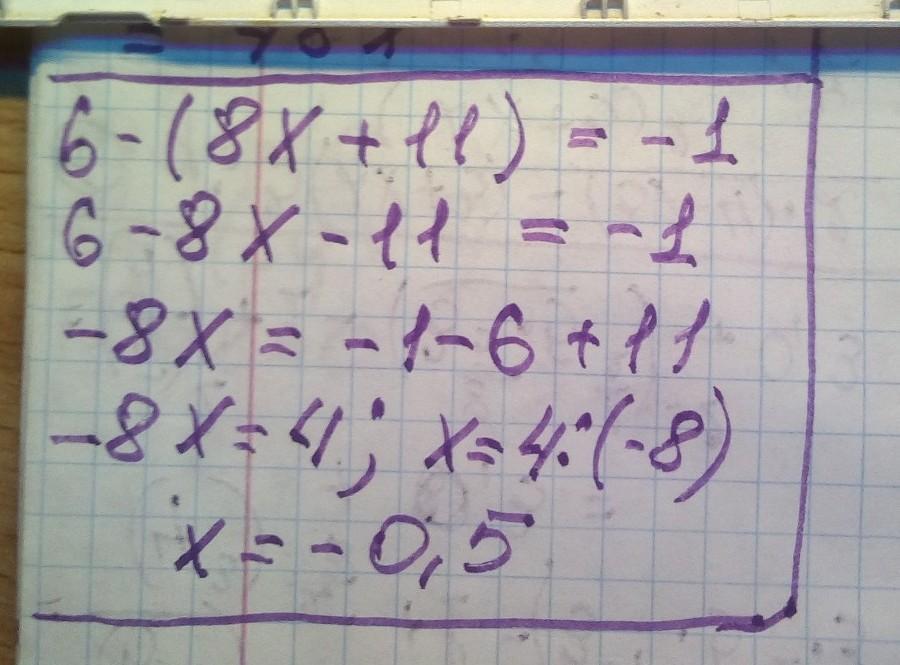 6-(8x+11) = -1
6-8x-11 = -1
-8x = -1-6+11
-8x=4; x=4:(-8)
x=-0,5